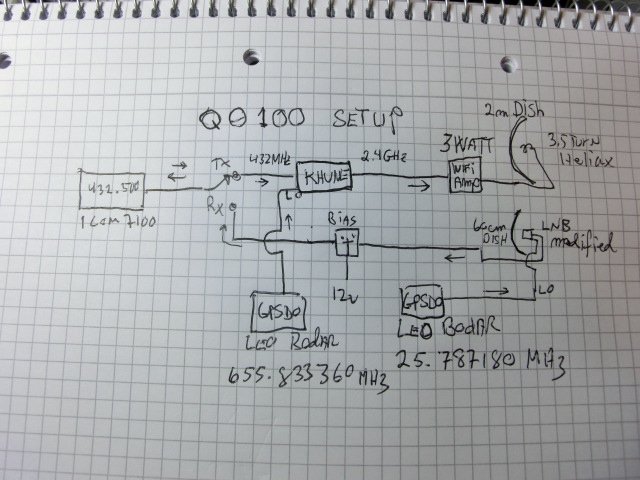 QO 100 SETUP
2m Dish
3 WATT
3,5 Turn
Heliax
TX
432MHz
2.4GHz
432.500
KHUNE
WiFi
AMP
LO
Icom 7100
RX
BiAS
60cm
DISH
LNB
modified
12v
LO
GPSDO
GPSDO
LEO BODNAR
LEO BODNAR
655.833360 MHz
25.787180 MHz